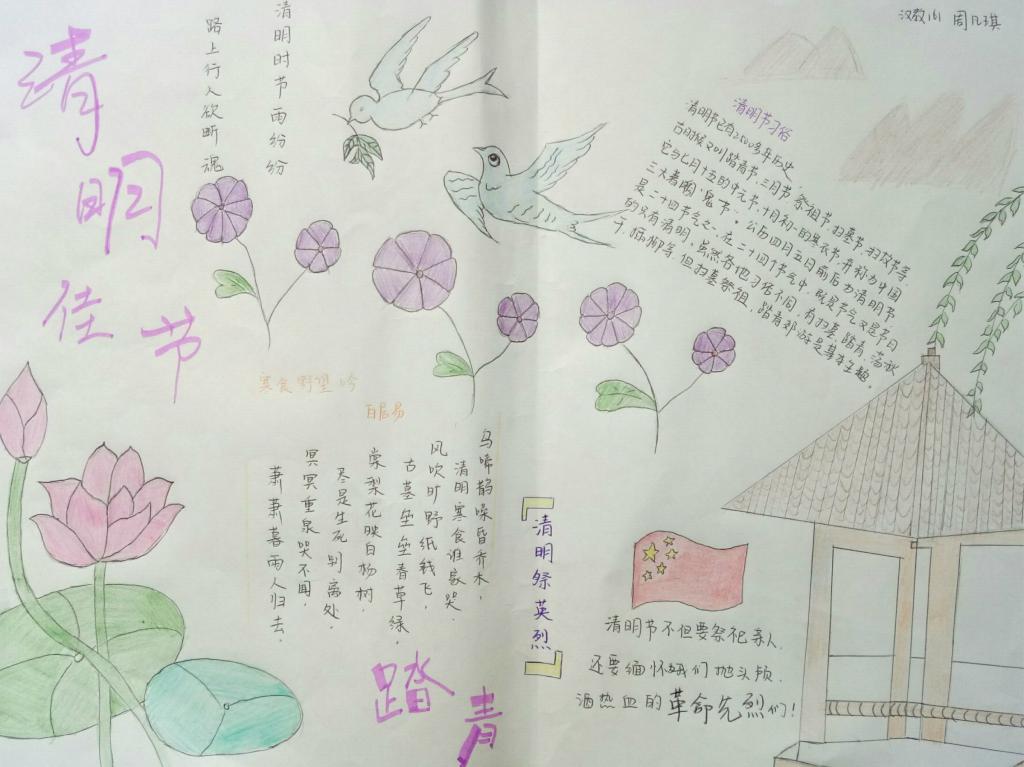 清
明
佳
节
清明时节雨纷纷
路上行人欲断魂
汉教(1) 周几琪
清明节习俗
清明节已有2500多年历史,
古时候又叫踏青节、三月节、祭祖节、扫墓节、扫坟节等.
它与七月十五的中元节、十月初一的寒衣节,并称为中国
三大著名“鬼节”。公历四月五日前后为清明节
是二十四节气之一,在二十四个节气中,既是节气又是节日
的只有清明,虽然各地习俗不同,有扫墓、踏青、荡秋
千、插柳等,但扫墓祭祖、踏青郊游是基本主题。
寒食野望吟
白居易
乌啼鹊噪昏乔木,
清明寒食谁家哭.
风吹旷野纸钱飞,
古墓垒垒青草绿.
棠梨花映白杨树,
尽是生死别离处.
冥冥重泉哭不闻,
萧萧暮雨人归去.
清明祭英烈
清明节不但要祭祀亲人.
还要缅怀我们抛头颅.
洒热血的革命先烈们!
踏
青